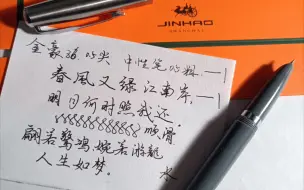 JINHAO
金豪 85尖 中性笔
春風又绿江南岸,
明月何时照我还.
顺滑
翩若驚鸿,婉若游龍
人生如梦.